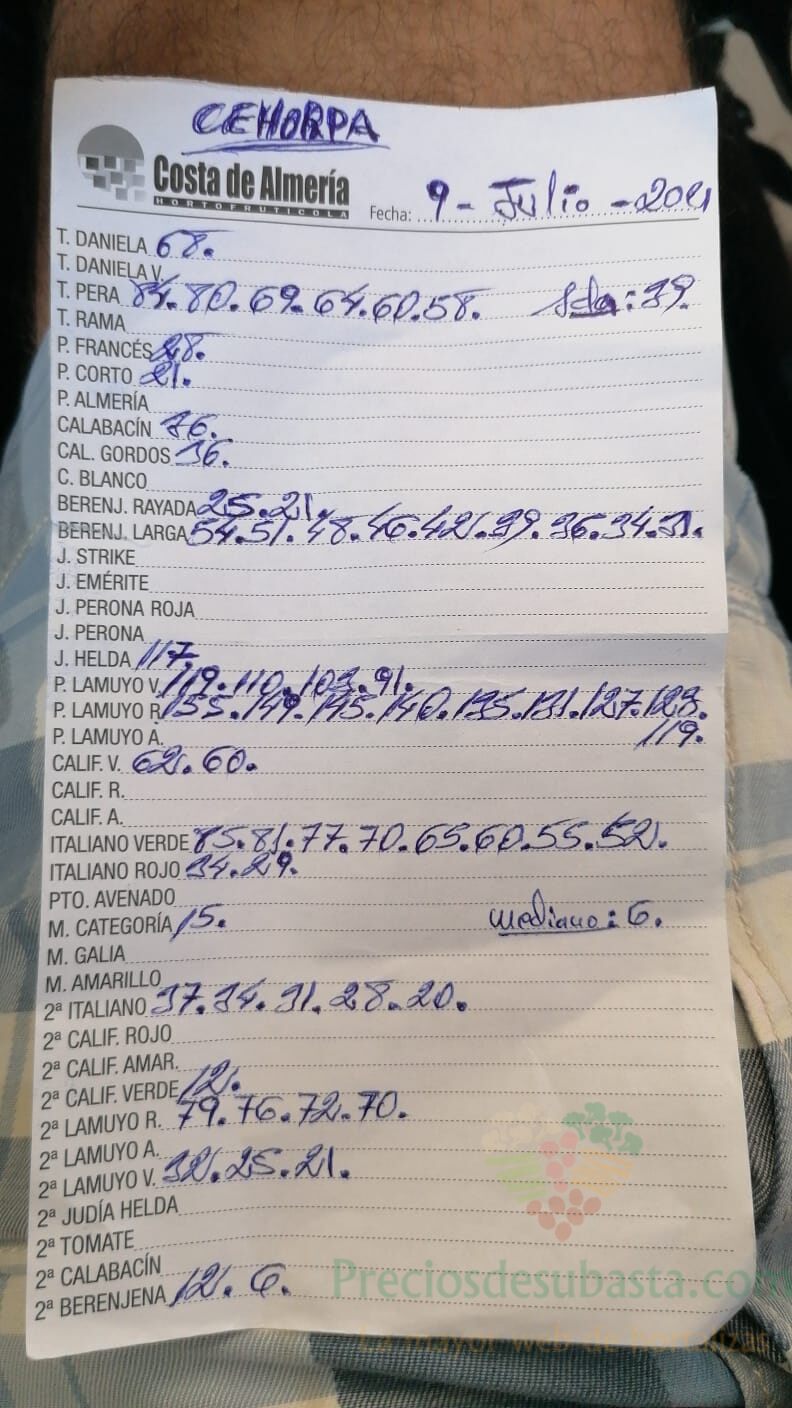 CEHORPA
Costa de Almería
HORTOFRUTICOLA
Fecha: 9 - Julio - 2021
T. DANELA 68.
T. DANIELA V.
T. PERA 84. 80. 69. 64. 60. 58. 2da: 39.
T. RAMA
P. FRANCÉS 28.
P. CORTO 21.
P. ALMERÍA
CALABACÍN 76.
CAL. GORDOS 36.
C. BLANCO
BERENJ. RAYADA 25. 21.
BERENJ. LARGA 54. 51. 48. 46. 42. 39. 36. 34. 31.
J. STRIKE
J. EMÉRITE
J. PERONA ROJA
J. PERONA
J. HELDA 117.
P. LAMUYO V. 119. 110. 103. 91.
P. LAMUYO R. 155. 149. 145. 140. 135. 131. 127. 123.
P. LAMUYO A. 119.
CALIF. V. 62. 60.
CALIF. R.
CALIF. A.
ITALIANO VERDE 85. 81. 77. 70. 65. 60. 55. 52.
ITALIANO ROJO 34. 29.
PTO. AVENADO
M. CATEGORÍA 15. mediano: 6.
M. GALIA
M. AMARILLO
2ª ITALIANO 37. 34. 31. 28. 20.
2ª CALIF. ROJO
2ª CALIF. AMAR.
2ª CALIF. VERDE 12.
2ª LAMUYO R. 79. 76. 72. 70.
2ª LAMUYO A.
2ª LAMUYO V. 32. 25. 21.
2ª JUDÍA HELDA
2ª TOMATE
2ª CALABACÍN
2ª BERENJENA 12. 6.
Preciosdesubasta.com
La mayor web de hortalizas